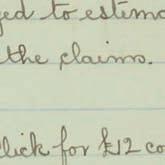 to estim
the claims.
lick for £12 co